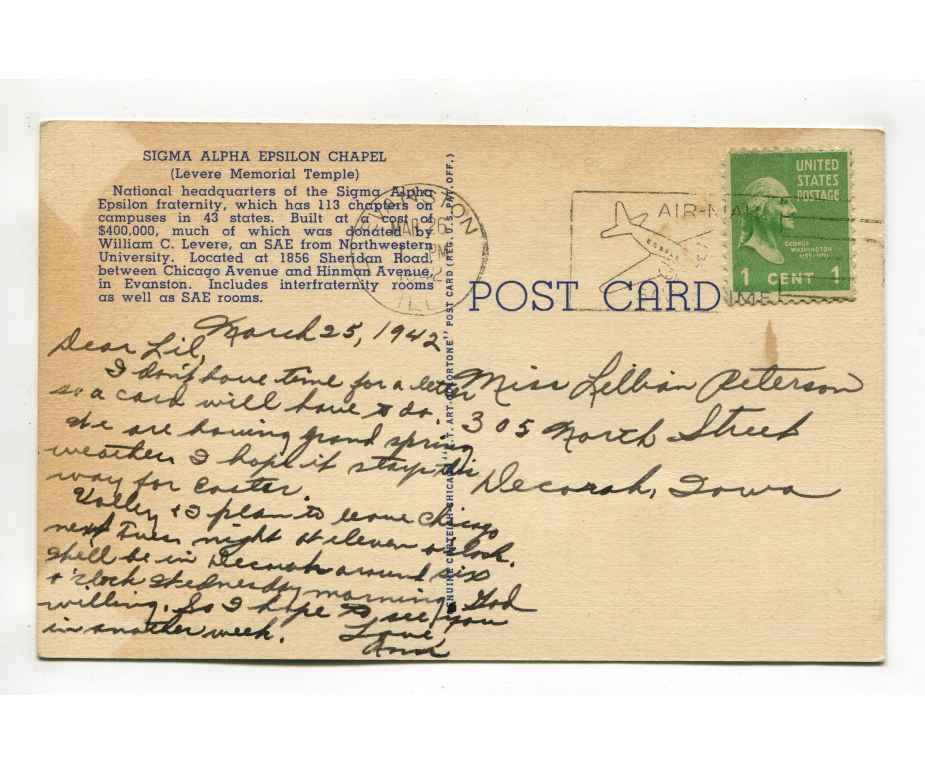 SIGMA ALPHA EPSILON CHAPEL
(Levere Memorial Temple)
National headquarters of the Sigma Alpha
Epsilon fraternity, which has 113 chapters on
campuses in 43 states. Built at a cost of
$400,000, much of which was donated by
William C. Levere, an SAE from Northwestern
University. Located at 1856 Sheridan Road,
between Chicago Avenue and Hinman Avenue,
in Evanston. Includes interfraternity rooms
as well as SAE rooms.
EVANSTON
MAR 26
PM
ILL
AIR-MAIL
UNITED
STATES
POSTAGE
GEORGE
WASHINGTON
1 CENT 1
POST CARD
GENUINE CURTEICH-CHICAGO "C.T. ART-COLORTONE" POST CARD (REG. U.S. PAT. OFF.)
March 25, 1942
Dear Lil,
I don't have time for a letter
so a card will have to do.
We are having grand spring
weather. I hope it stays this
way for easter.
& I plan to leave Chicago
next Tues night at eleven o'clock.
Shall be in Decorah around six
o'clock Wednesday morning, God
willing. So I hope to see you
in another week. Love,
Miss Lillian Peterson
305 North Street
Decorah, Iowa